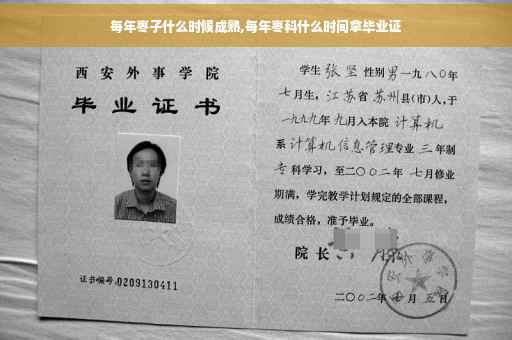 每年枣子什么时候成熟,每年枣科什么时间拿毕业证
西安外事学院
毕业证书
证书编号:0209130411
学生 张坚 性别 男 一九八〇年
七月生, 江苏省 苏州 县(市)人,于
一九九九年 九月入本院 计算机
系 计算机信息管理 专业 三 年制
专科学习，至二〇〇二年 七月修业
期满，学完教学计划规定的全部课程，
成绩合格，准予毕业。
院长
二〇〇二年 月 五日